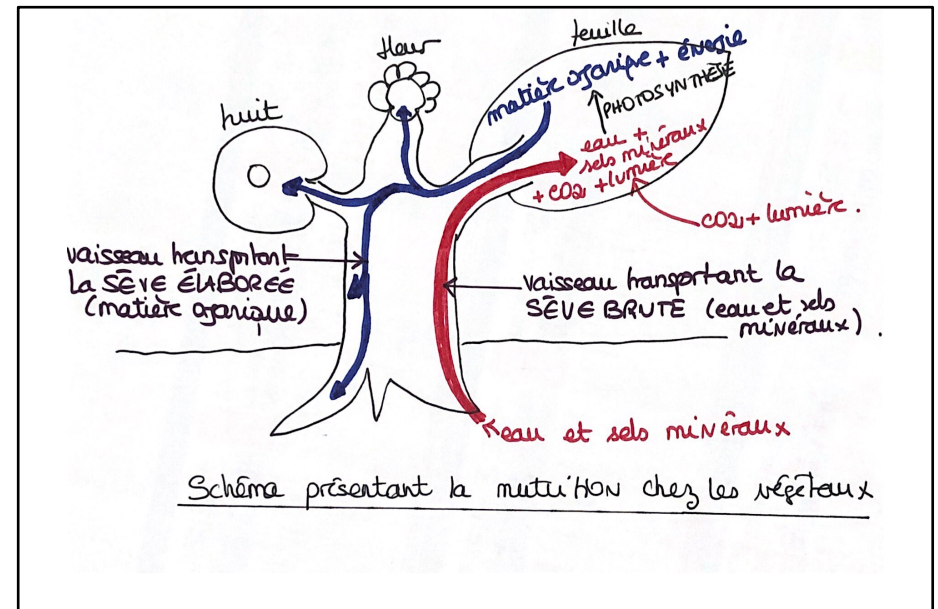 feuille
fleur
fruit
matière organique + énergie
PHOTOSYNTHÈSE
eau +
sels minéraux
+ CO2 + lumière
CO2 + lumière.
vaisseau transportant
la SÈVE ÉLABORÉE
(matière organique)
vaisseau transportant la
SÈVE BRUTE (eau et sels
minéraux).
eau et sels minéraux
Schéma présentant la nutrition chez les végétaux